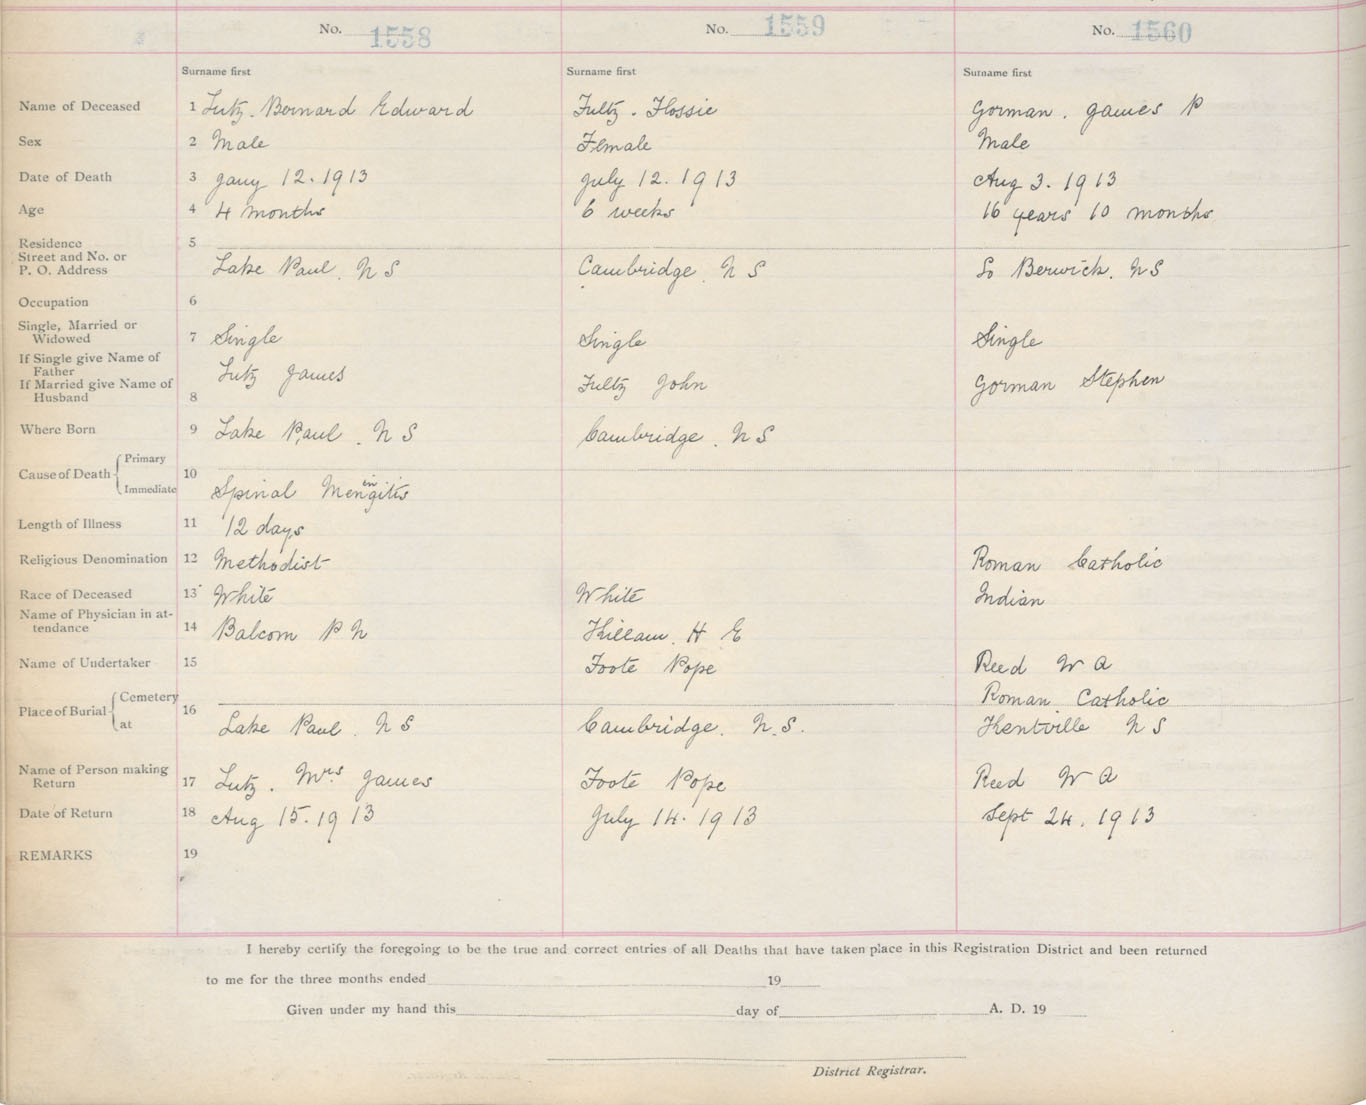 No. 1558 No. 1559 No. 1560
Surname first Surname first Surname first
Name of Deceased 1 Lutz. Bernard Edward Fultz. Flossie Gorman. James P
Sex 2 Male Female Male
Date of Death 3 Jany 12. 1913 July 12. 1913 Aug 3. 1913
Age 4 4 months 6 weeks 16 years 10 months
Residence 5
Street and No. or
P. O. Address Lake Paul. N S Cambridge. N S So Berwick. N S
Occupation 6
Single, Married or
Widowed 7 Single Single Single
If Single give Name of
Father Lutz James Fultz John Gorman Stephen
If Married give Name of
Husband 8
Where Born 9 Lake Paul. N S Cambridge. N S
Cause of Death Primary 10
Immediate Spinal Meningitis
Length of Illness 11 12 days
Religious Denomination 12 Methodist Roman Catholic
Race of Deceased 13 White White Indian
Name of Physician in at-
tendance 14 Balcom P N Killam. H E
Name of Undertaker 15 Foote Pope Reed W A
Place of Burial Cemetery 16 Roman Catholic
at Lake Paul. N S Cambridge. N.S. Kentville N S
Name of Person making
Return 17 Lutz. Mrs James Foote Pope Reed W A
Date of Return 18 Aug 15. 1913 July 14. 1913 Sept 24. 1913
REMARKS 19
I hereby certify the foregoing to be the true and correct entries of all Deaths that have taken place in this Registration District and been returned
to me for the three months ended 19
Given under my hand this day of A. D. 19
District Registrar.